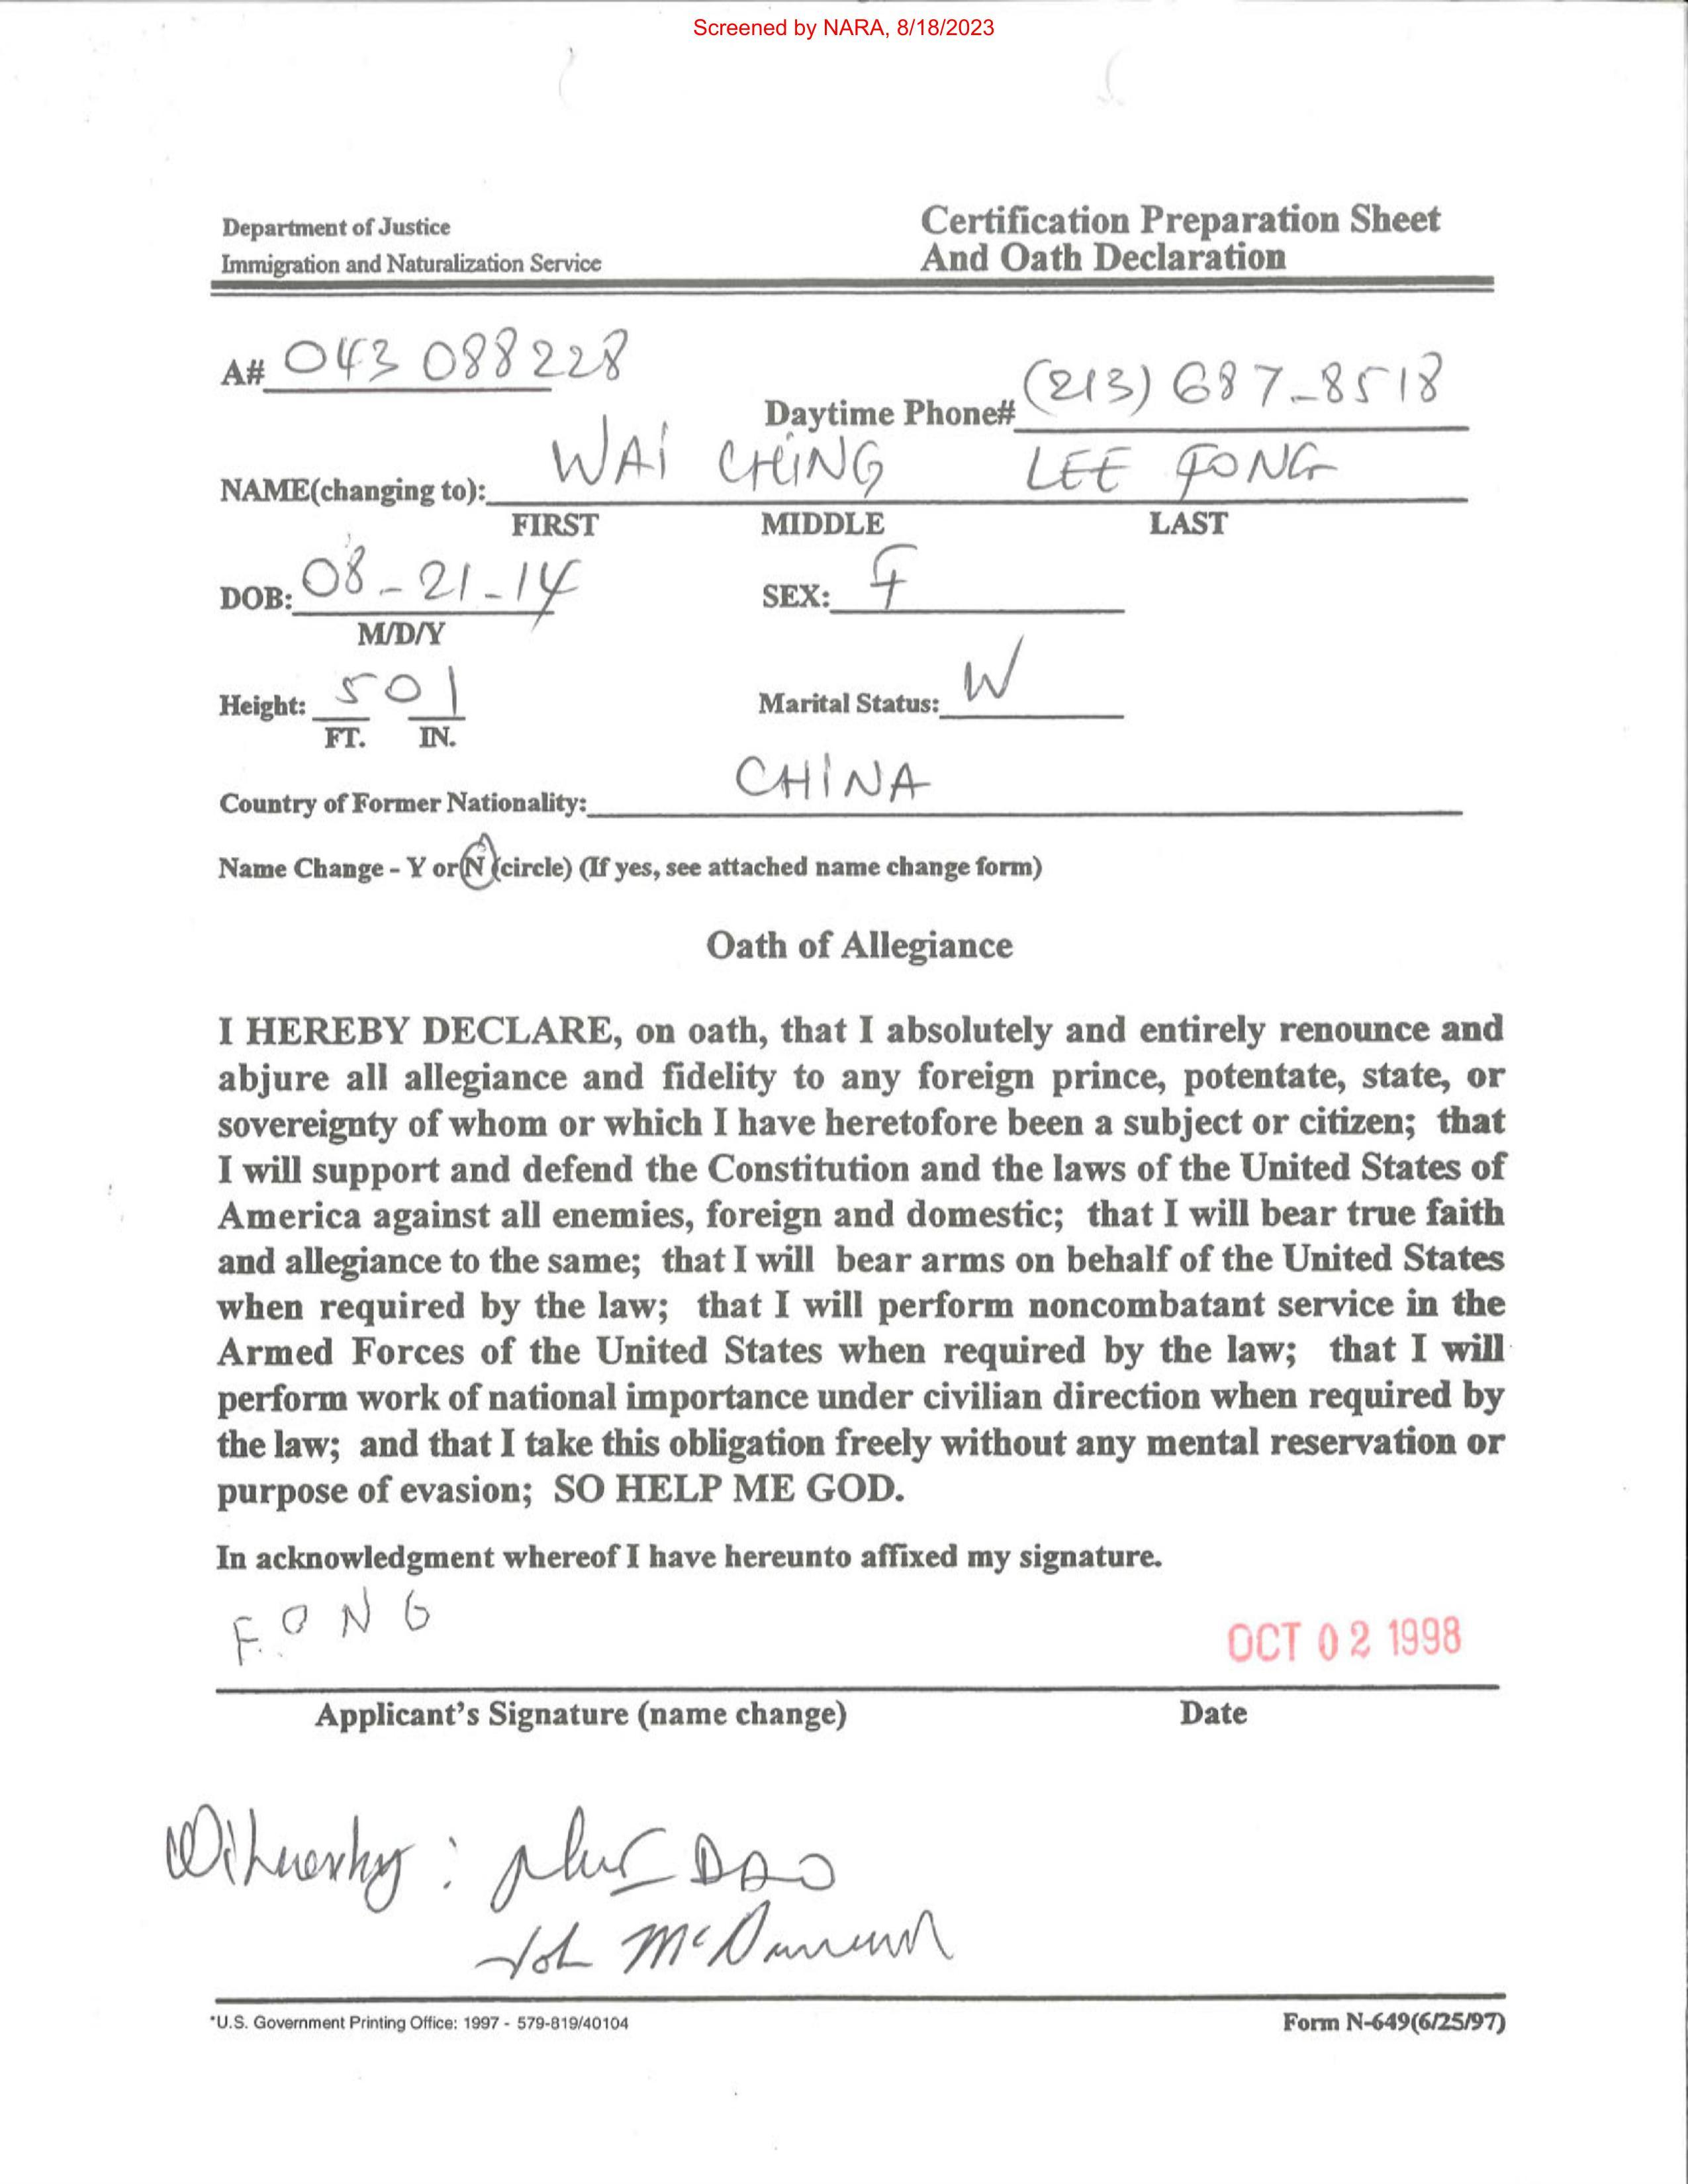 Screened by NARA, 8/18/2023
Department of Justice
Immigration and Naturalization Service
Certification Preparation Sheet
And Oath Declaration
A# 043 088228
Daytime Phone# (213) 687-8518
NAME(changing to): WAI CHING LEE FONG
FIRST MIDDLE LAST
DOB: 08-21-14 SEX: F
M/D/Y
Height: 5 01 Marital Status: W
FT. IN.
Country of Former Nationality: CHINA
Name Change - Y or N (circle) (If yes, see attached name change form)
Oath of Allegiance
I HEREBY DECLARE, on oath, that I absolutely and entirely renounce and
abjure all allegiance and fidelity to any foreign prince, potentate, state, or
sovereignty of whom or which I have heretofore been a subject or citizen; that
I will support and defend the Constitution and the laws of the United States of
America against all enemies, foreign and domestic; that I will bear true faith
and allegiance to the same; that I will bear arms on behalf of the United States
when required by the law; that I will perform noncombatant service in the
Armed Forces of the United States when required by the law; that I will
perform work of national importance under civilian direction when required by
the law; and that I take this obligation freely without any mental reservation or
purpose of evasion; SO HELP ME GOD.
In acknowledgment whereof I have hereunto affixed my signature.
FONG
OCT 02 1998
Applicant's Signature (name change) Date
: DAO
McD
*U.S. Government Printing Office: 1997 - 579-819/40104
Form N-649(6/25/97)